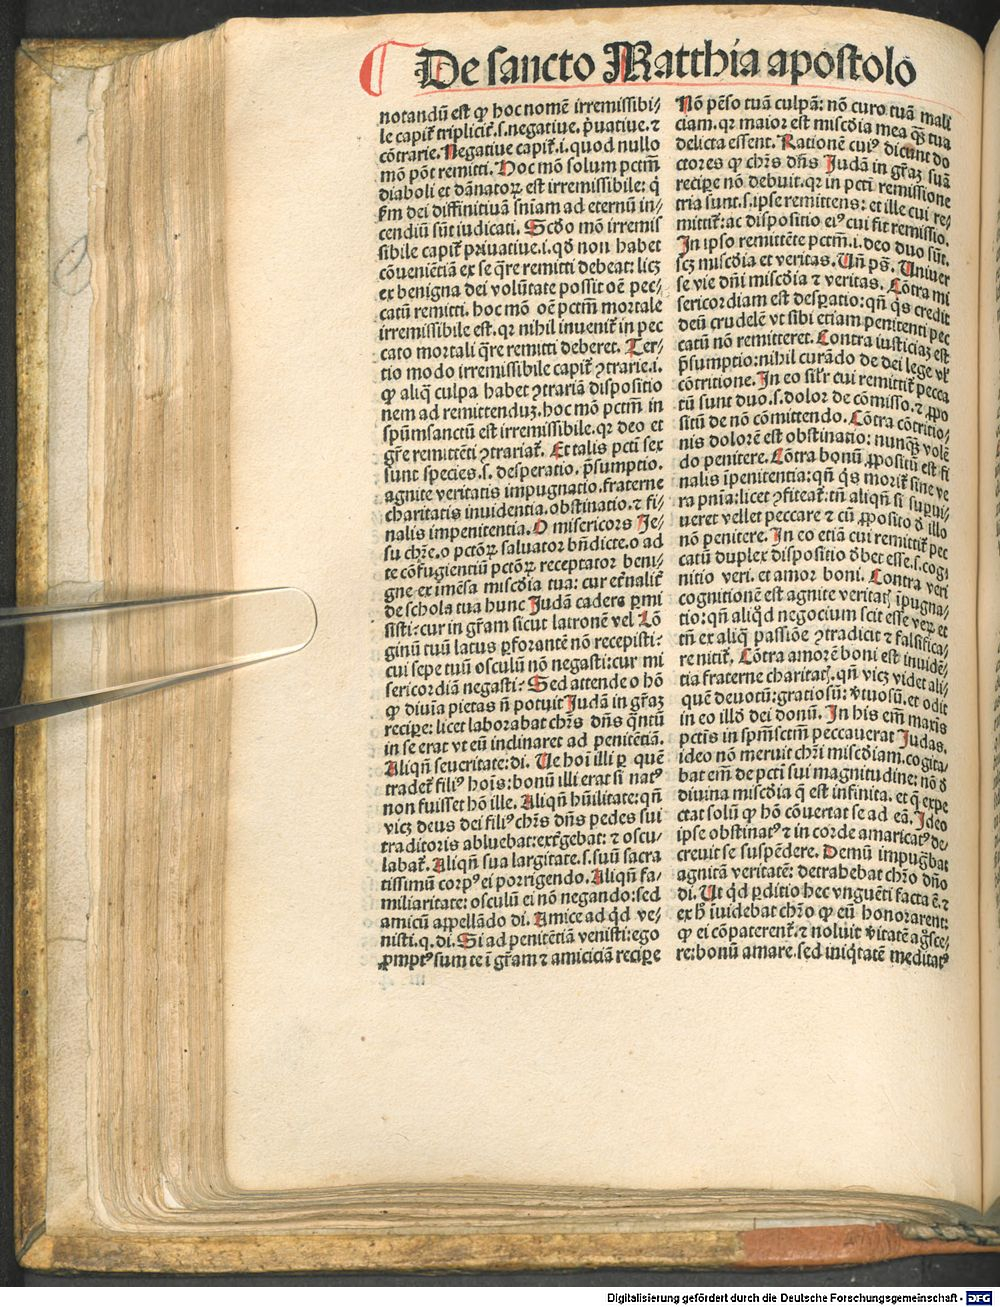 De sancto Matthia apostolo
notandū est ꝙ hoc nomē irremissibi⸗
le capit᷑ triplicit᷑.s.negatiue.p̄uatiue.⁊
cōtrarie.Negatiue capit᷑.i.quod nullo
mō pōt remitti.Hoc mō solum pctm̄
diaboli et dānatoꝝ est irremissibile: q̄
ẜm dei diffinitiuā sniam ad eternū in⸗
cendiū sūt iudicati. Scd̄o mō irremis
sibile capit᷑ pꝛiuatiue.i.qd̄ non habet
cōueniētiā ex se q̄re remitti debeat: licꝫ
ex benigna dei volūtate possit oē pec⸗
catū remitti. hoc mō oē pctm̄ mortale
irremissibile est.qꝛ nihil inuenit᷑ in pec
cato mortali q̄re remitti deberet. Ter⸗
tio modo irremissibile capit᷑ ꝯtrarie.i.
ꝙ aliq̄ culpa habet ꝯtrariā dispositio
nem ad remittenduꝫ.hoc mō pctm̄ in
spūmsanctū est irremissibile.qꝛ deo et
gr̄e remittēti ꝯtrariat᷑. Et talis pcti sex
sunt species.s. desperatio. p̄sumptio.
agnite veritatis impugnatio.fraterne
charitatis inuidentia.obstinatio.⁊ fi⸗
nalis impenitentia. O misericors Je⸗
su chꝛe.o pctōꝝ saluator bn̄dicte.o ad
te cōfugientiū pctōꝝ receptator beni⸗
gne ex imēsa misc̄dia tua: cur et̄nalit᷑
de schola tua hunc Judā cadere ꝑmi
sisti: cur in gr̄am sicut latronē vel Lō
ginū tuū latus ꝑforantē nō recepisti:
cui sepe tuū osculū nō negasti:cur mi
sericordiā negasti: Sed attende o hō
ꝙ diuīa pietas n̄ potuit Judā in gr̄aꝫ
recipe: licet laborabat chꝛs dn̄s q̄ntū
in se erat vt eū inclinaret ad penitētiā.
Aliqn̄ seueritate: di. Ue hoī illi ꝑ quē
tradet᷑ filiꝰ hoīs: bonū illi erat si natꝰ
non fuisset hō ille. Aliqn̄ hūilitate: qn̄
vicꝫ deus dei filiꝰ chꝛs dn̄s pedes sui
traditoris abluebat:ext̄gebat: ⁊ oscu⸗
labat᷑. Aliqn̄ sua largitate.s.suū sacra
tissimū corpꝰ ei porrigendo. Aliqn̄ fa⸗
miliaritate: osculū ei nō negando:sed
amicū appellādo di. Amice ad qd̄ ve⸗
nisti.q.di. Si ad penitētiā venisti:ego
ꝓmptꝰ sum te ī gr̄am ⁊ amiciciā recipe
Nō pēso tuā culpā: nō curo tuā mali
ciam.qꝛ maior est misc̄dia mea qꝫ tua
delicta essent. Rationē cuiꝰ dicunt do
ctores ꝙ chꝛs dn̄s Judā in gr̄aꝫ suā
recipe nō debuit.qꝛ in pcti remissione
tria sunt.s.ipse remittens: et ille cui re⸗
mittit᷑: ac dispositio eiꝰ cui fit remissio.
In ipso remittēte pctm̄.i.deo duo sūt.
scꝫ misc̄dia et veritas. Uñ pꝰ. Uniuer
se vie dn̄i misc̄dia ⁊ veritas. Cōtra mi
sericordiam est despatio: qn̄ qs credit
deū crudelē vt sibi etiam penitenti pec
catū nō remitteret. Contra iusticiaꝫ est
p̄sumptio: nihil curādo de dei lege vl̓
cōtritione. In eo sil̓r cui remittit᷑ pecca
tū sunt duo.s.dolor de cōmisso.⁊ ꝓpo
situ de nō cōmittendo. Cōtra cōtritio⸗
nis dolorē est obstinatio: nunqꝫ volē
do penitere. Cōtra bonū ꝓpositū est fi
nalis īpenitentia: qn̄ qs morit᷑ sine ve
ra pnīa: licet ꝯfiteat᷑: tn̄ aliqn̄ si supui⸗
ueret vellet peccare ⁊ cū ꝓposito d̄ illo
nō penitere. In eo etiā cui remittit᷑ pec
catū duplex dispositio d̄bet esse.s.cog⸗
nitio veri. et amor boni. Contra veri
cognitionē est agnite veritat᷑ īpugna⸗
tio: qn̄ aliqd̄ negocium scit esse veꝝ et
tn̄ ex aliq̄ passiōe ꝯtradicit ⁊ falsifica⸗
re nitit᷑. Cōtra amorē boni est inuidē⸗
tia fraterne charitat᷑. qn̄ vicꝫ videt ali⸗
quē deuotū: gratiosū: v̄tuosū. et odit
in eo illō dei donū. In his em̄ maxīs
pctīs in spm̄sctm̄ peccauerat Judas.
ideo nō meruit chꝛi misc̄diam.cogita⸗
bat em̄ de pcti sui magnitudine: nō d̄
diuina misc̄dia q̄ est infinita. et q̄ expe
ctat solū ꝙ hō cōuertat se ad eā. Ideo
ipse obstinatꝰ ⁊ in corde amaricatꝰ de⸗
creuit se suspēdere. Demū impugb̄at
agnitā veritatē: detrahebat chꝛo dn̄o
di. Ut qd̄ ꝑditio hec vnguēti facta ē.⁊
ex h̄ iuidebat chꝛo ꝙ eū honorarent:
ꝙ ei cōpaterent᷑.⁊ noluit v̄itatē agn̄sce⸗
re: bonū amare.sed iniqtatē meditatꝰ
Digitalisierung gefördert durch die Deutsche Forschungsgemeinschaft - DFG